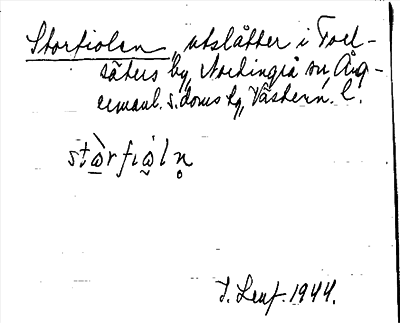 Storfiolen, utslåtter i Torl-
säters by, Nordingrå sn, Ång-
ermanl. s. doms bg, Västern. l.
stà̱rfiȧ̰ln̥
J. Leuf. 1944.